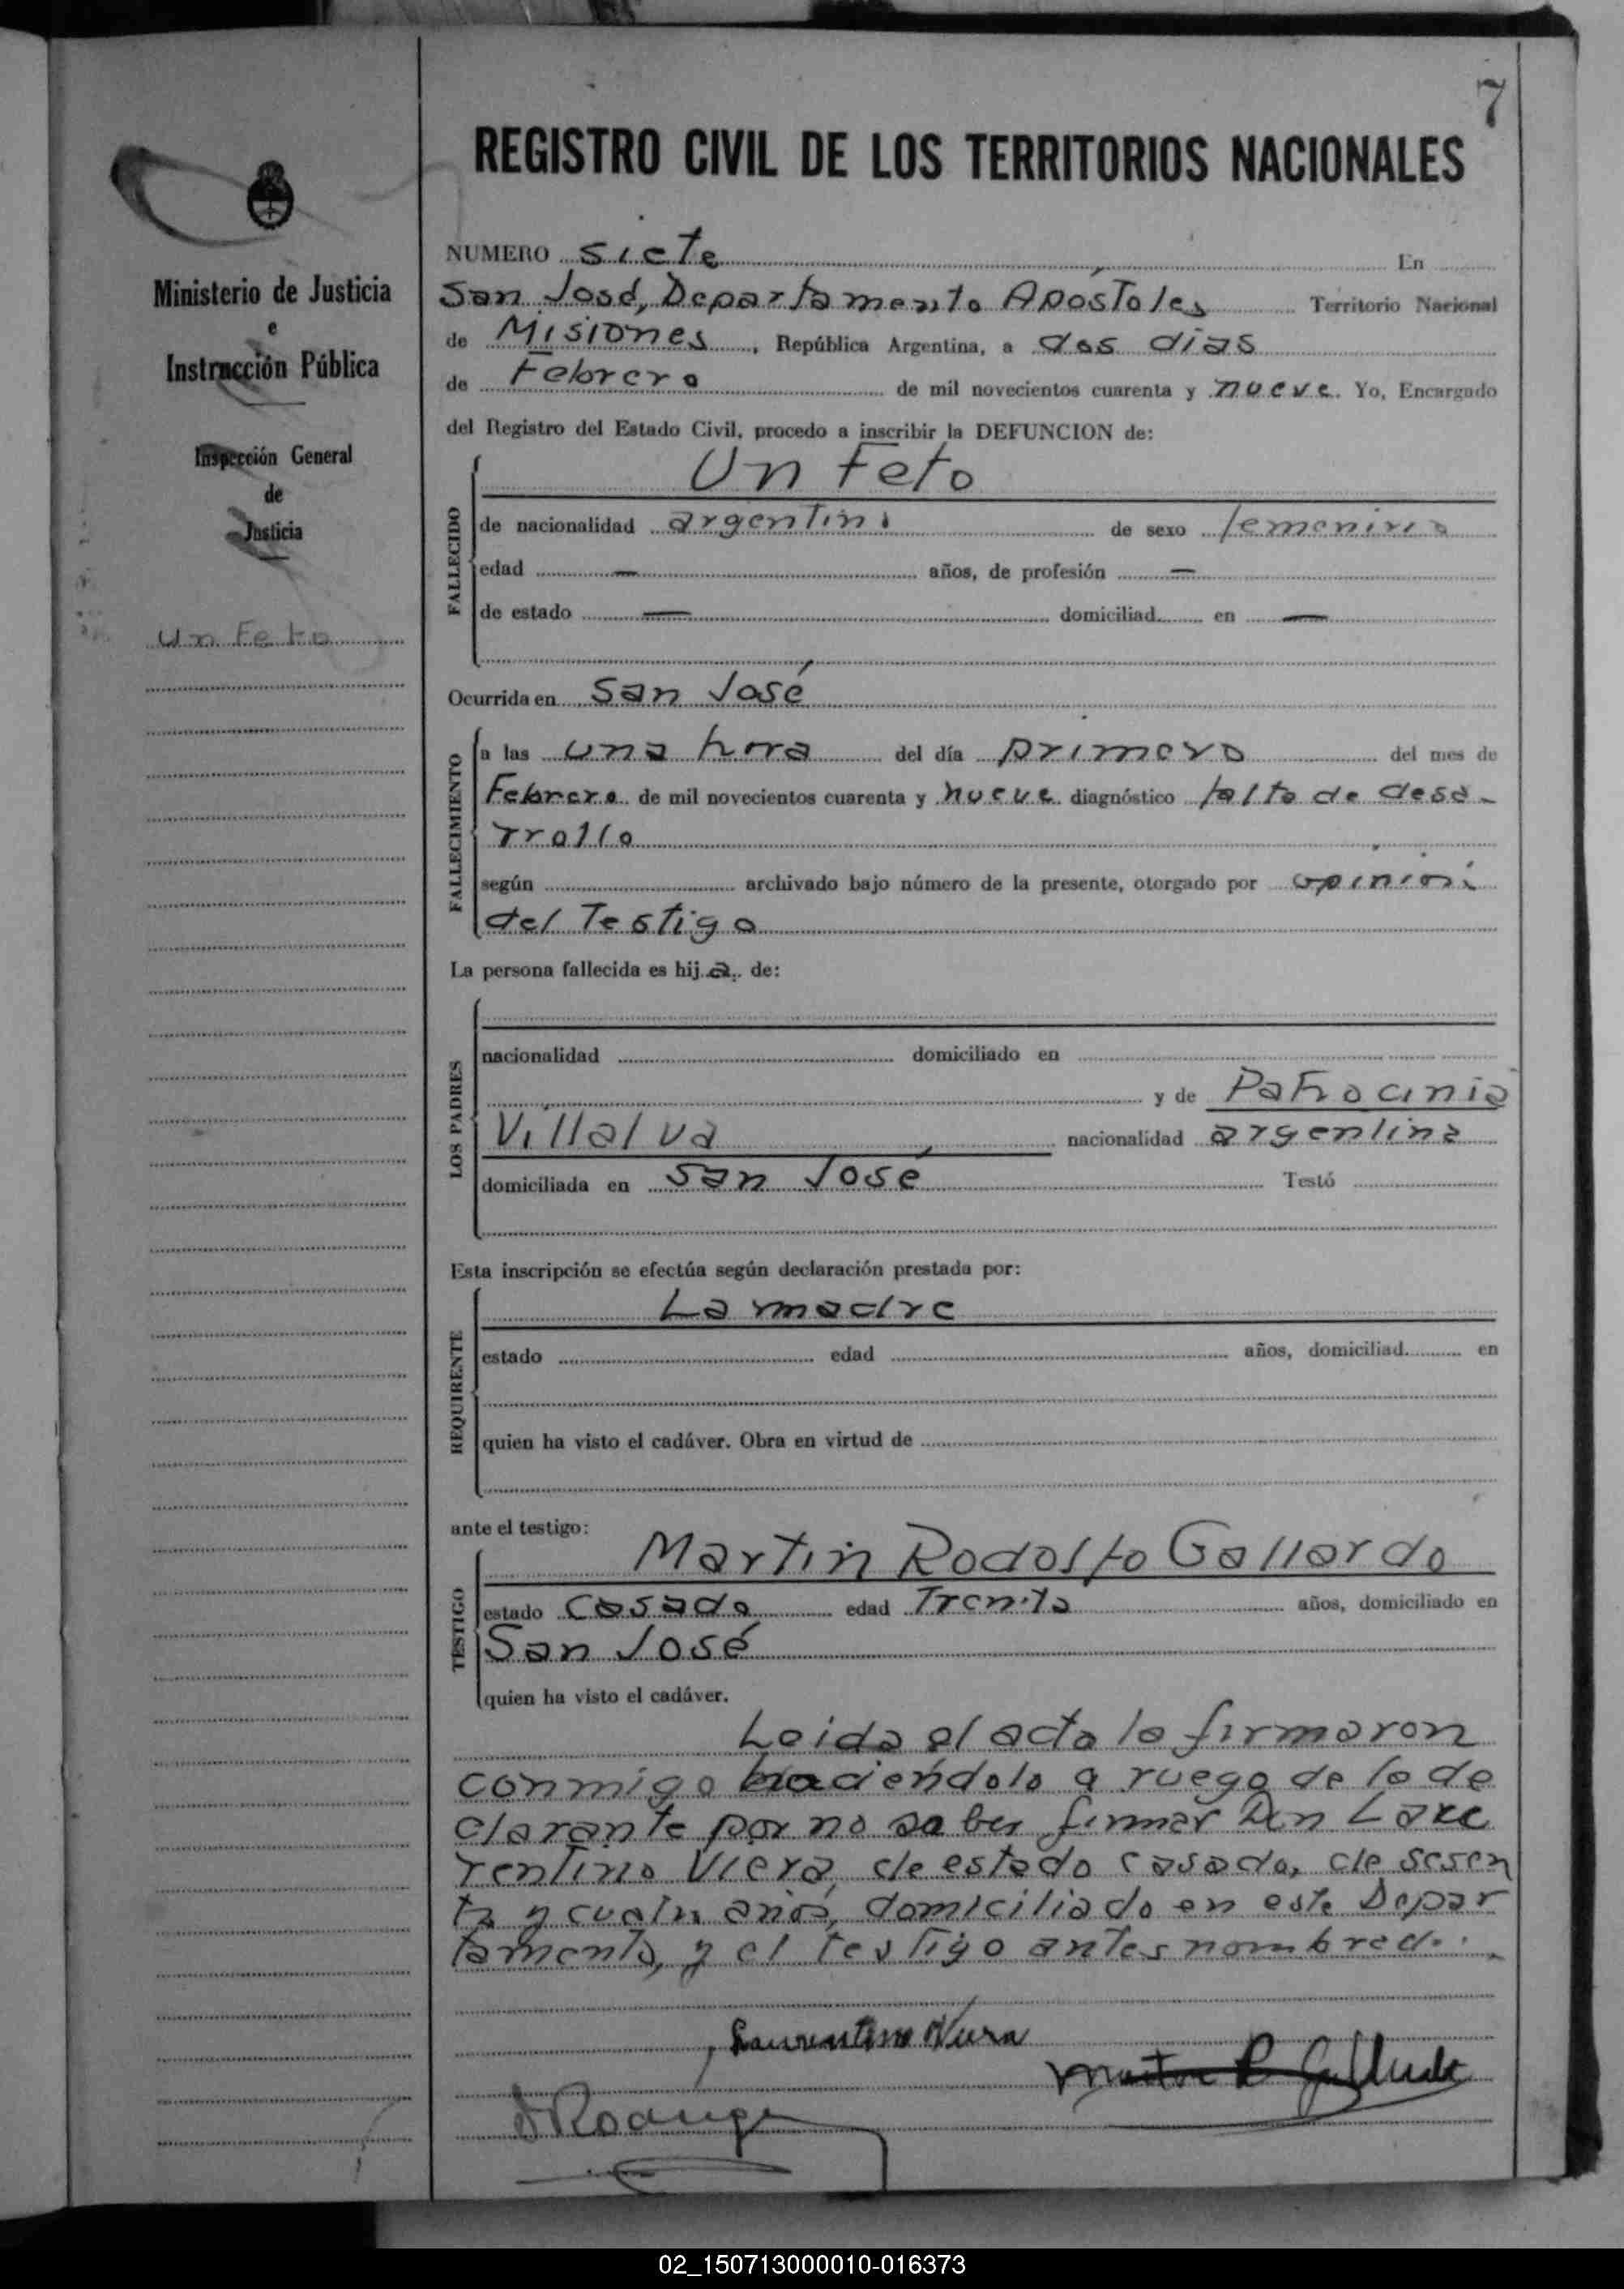 7
REGISTRO CIVIL DE LOS TERRITORIOS NACIONALES
Ministerio de Justicia
e
Instrucción Pública
Inspección General
de
Justicia
Un Feto
NUMERO siete En
San José, Departamento Apóstoles Territorio Nacional
de Misiones, República Argentina, a dos dias
de Febrero de mil novecientos cuarenta y nueve. Yo, Encargado
del Registro del Estado Civil, procedo a inscribir la DEFUNCION de:
FALLECIDO
Un Feto
de nacionalidad argentina de sexo femenino
edad — años, de profesión —
de estado — domiciliad en —
Ocurrida en San José
FALLECIMIENTO
a las una hora del día primero del mes de
Febrero de mil novecientos cuarenta y nueve diagnóstico falta de desa-
rrollo
según archivado bajo número de la presente, otorgado por opinión
del Testigo
La persona fallecida es hija de:
LOS PADRES
nacionalidad domiciliado en
y de Patrocinia
Villalva nacionalidad argentina
domiciliada en San José Testó
Esta inscripción se efectúa según declaración prestada por:
REQUIRENTE
La madre
estado edad años, domiciliad en
quien ha visto el cadáver. Obra en virtud de
ante el testigo:
TESTIGO
Martin Rodolfo Gallardo
estado Casado edad Treinta años, domiciliado en
San José
quien ha visto el cadáver.
Leida el acta la firmaron
conmigo haciéndolo a ruego de la de
clarante por no saber firmar Don
rentino Viera, de estado casado, de sesen
ta y cuatro años, domiciliado en este Depar
tamento, y el testigo antes nombrado.
Laurentino Viera
02_150713000010-016373